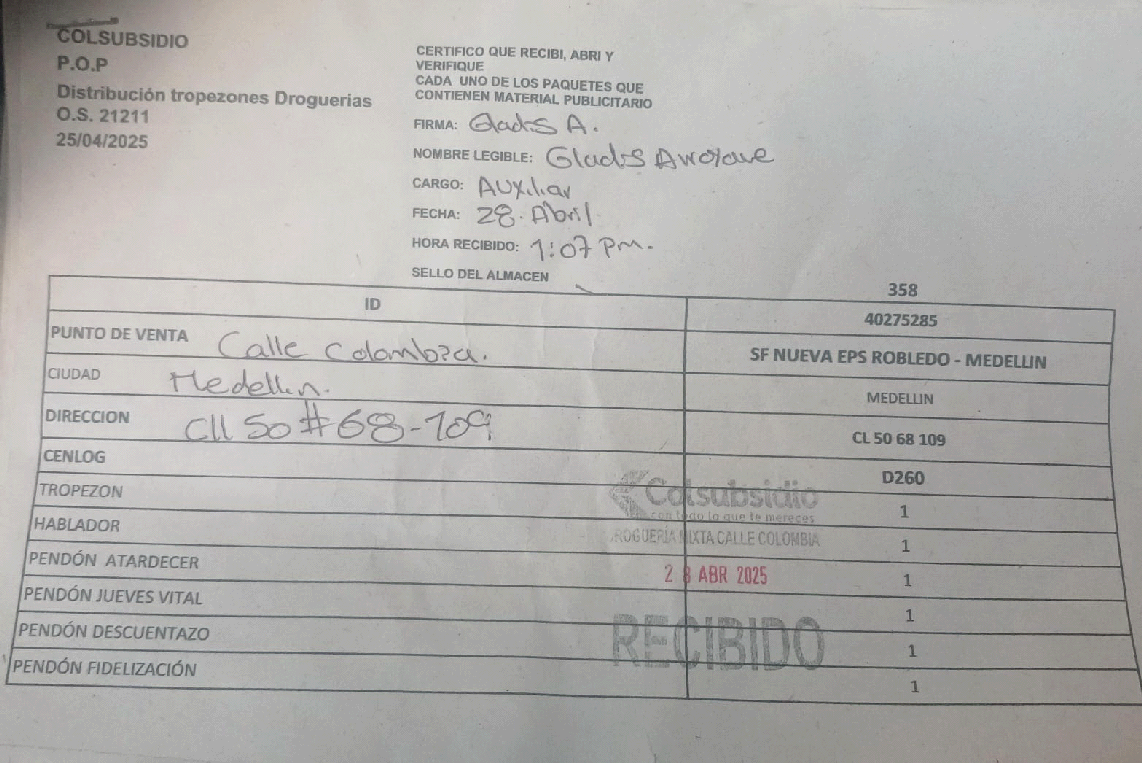 COLSUBSIDIO
P.O.P
Distribución tropezones Droguerias
O.S. 21211
25/04/2025
CERTIFICO QUE RECIBI, ABRI Y
VERIFIQUE
CADA UNO DE LOS PAQUETES QUE
CONTIENEN MATERIAL PUBLICITARIO
FIRMA: Gladis A.
NOMBRE LEGIBLE: Gladis
CARGO: Auxiliar
FECHA: 28. Abril
HORA RECIBIDO: 1:07 Pm.
SELLO DEL ALMACEN
358
ID 40275285
PUNTO DE VENTA Calle Colombia. SF NUEVA EPS ROBLEDO - MEDELLIN
CIUDAD Medellin. MEDELLIN
DIRECCION Cll 50 # 68-109 CL 50 68 109
CENLOG D260
TROPEZON 1
HABLADOR 1
PENDÓN ATARDECER 1
PENDÓN JUEVES VITAL 1
PENDÓN DESCUENTAZO 1
PENDÓN FIDELIZACIÓN 1
Colsubsidio
con todo lo que te mereces
DROGUERÍA MIXTA CALLE COLOMBIA
28 ABR 2025
RECIBIDO